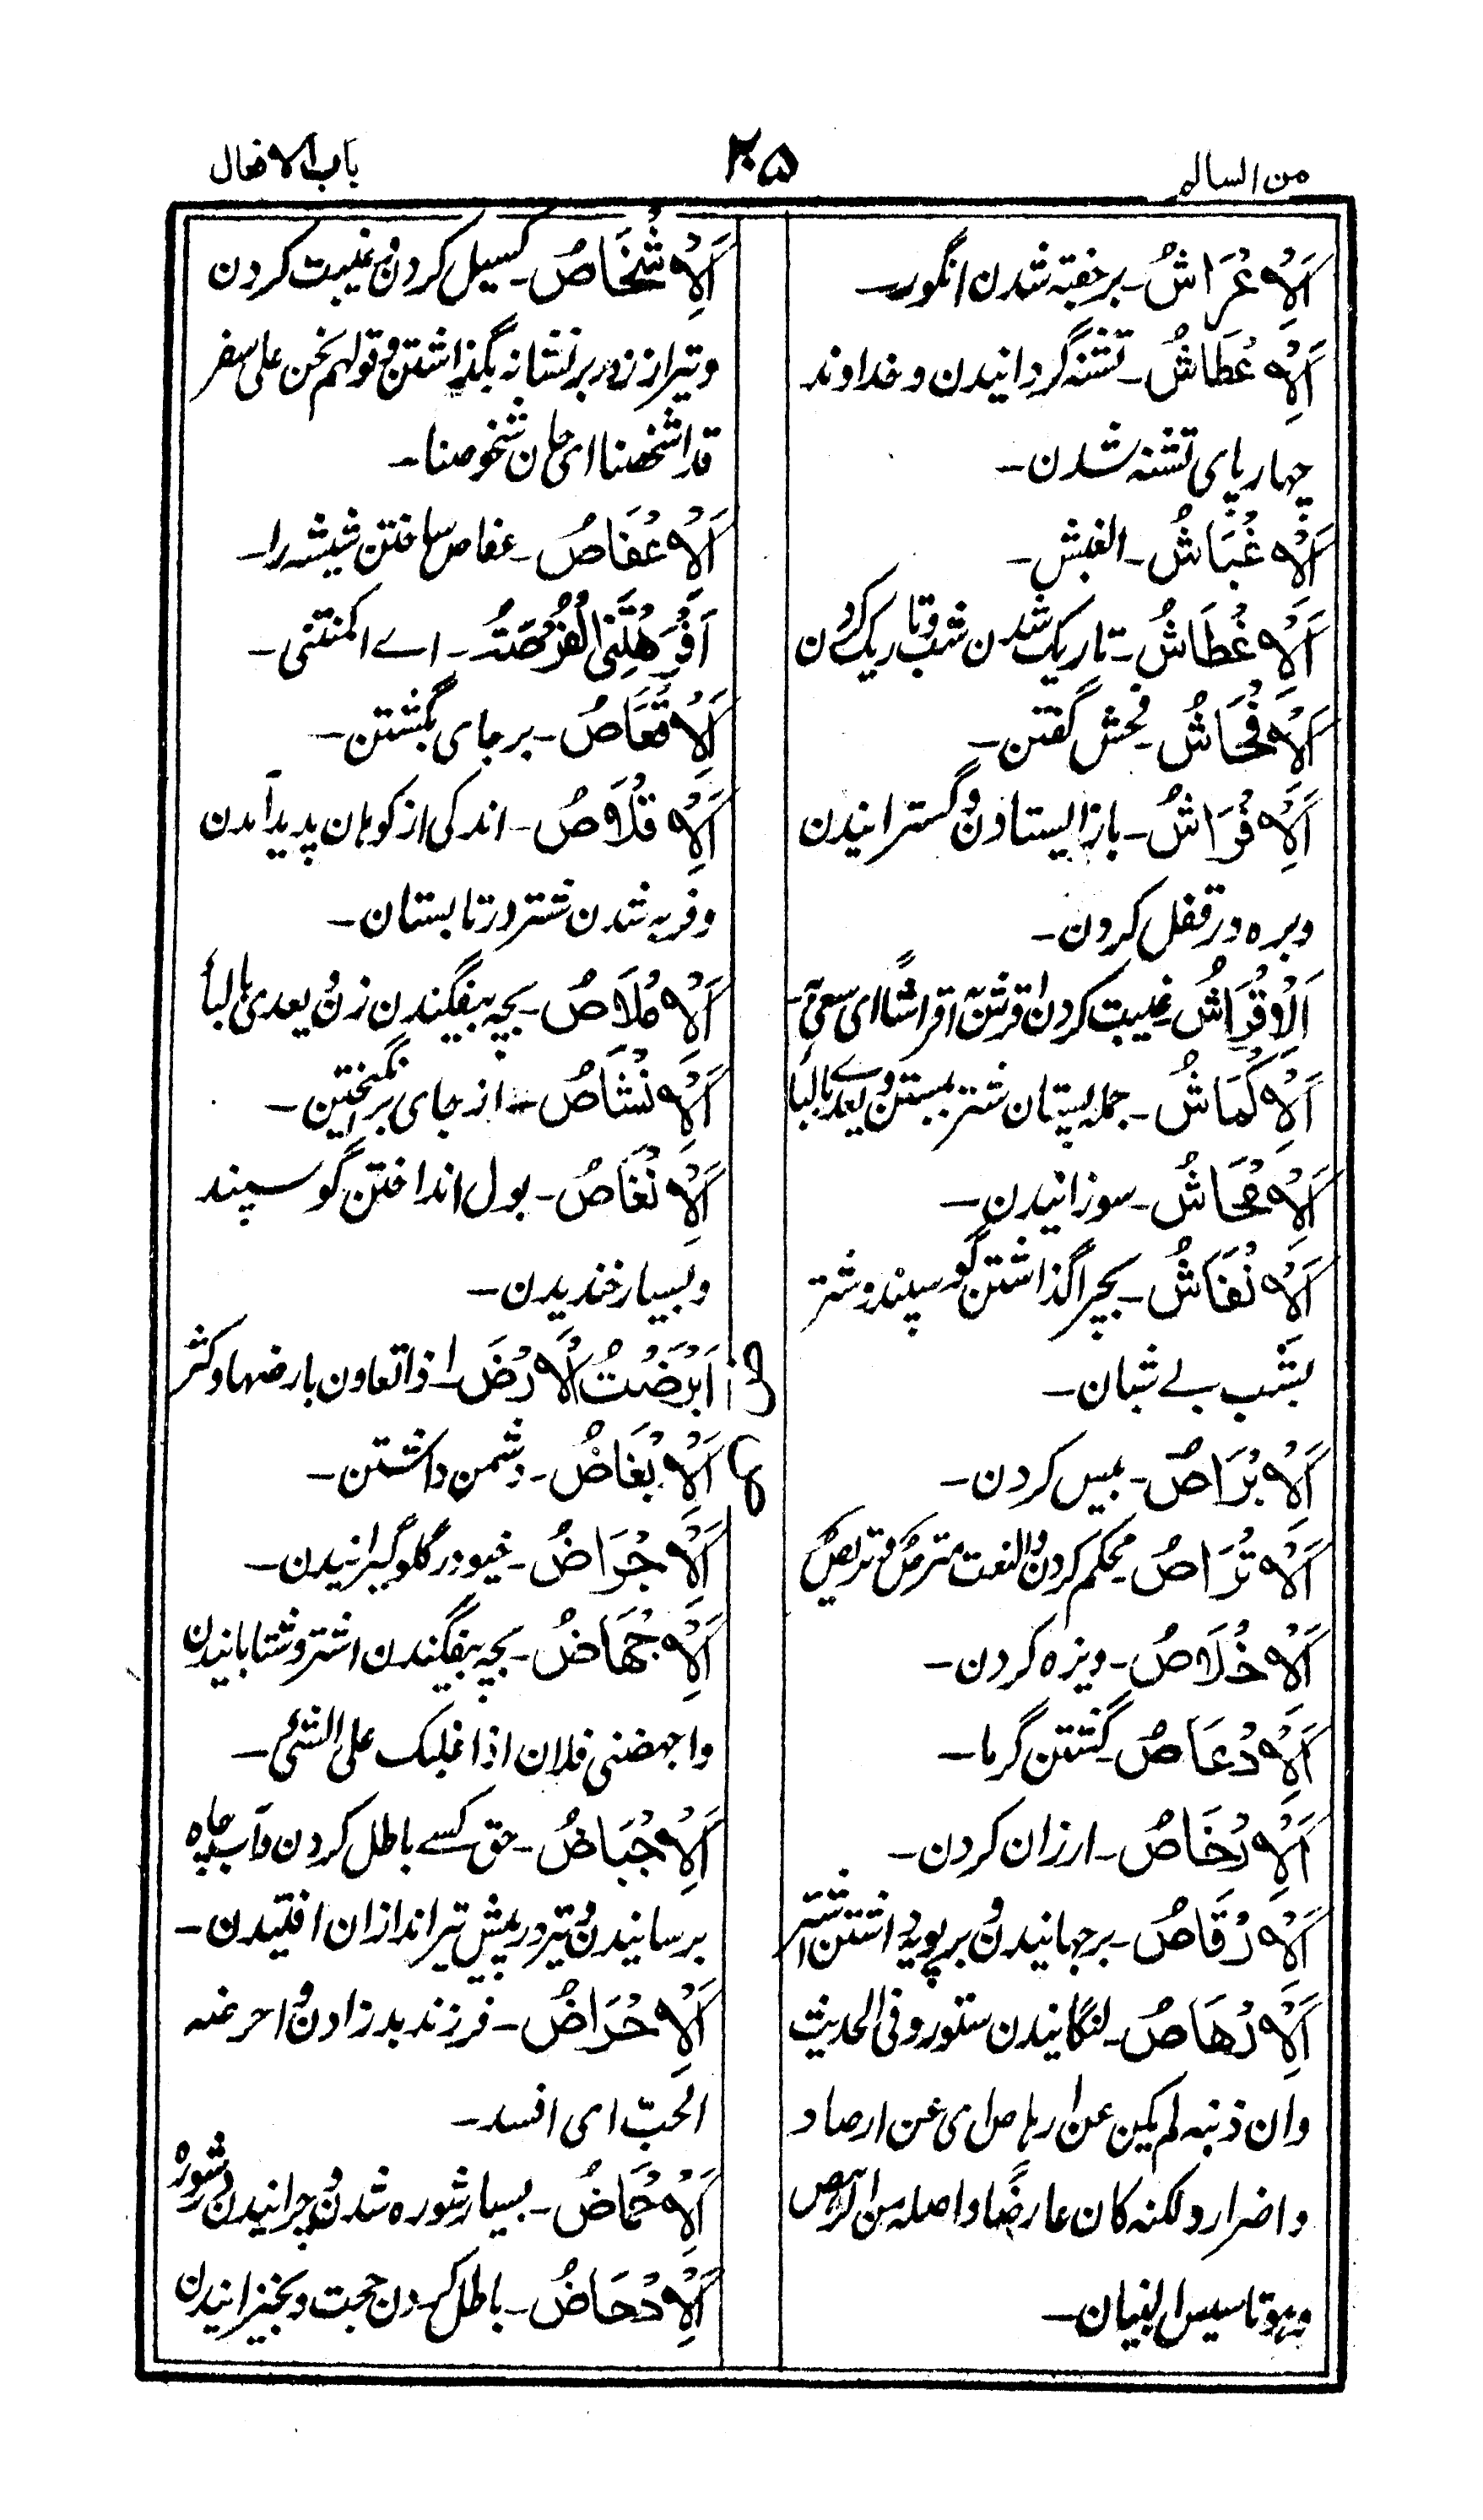 من السالم
۲۰۵
باب الافعال
اَلْاِعْرَاشُ ـ برخفته شدن انگور ـ
اَلْاِعْطَاشُ ـ تشنه گردانیدن و خداوند
چهارپای تشنه شدن ـ
اَلْاِغْبَاشُ ـ الغبش ـ
اَلْاِغْطَاشُ ـ تاریک شدن شب و تاریک کردن
اَلْاِفْحَاشُ ـ فحش گفتن ـ
اَلْاِفْرَاشُ ـ باز ایستادن و گسترانیدن
وبره در قفل کردن ـ
اَلْاِقْرَاشُ ـ غیبت کردن اقرش به اقراشًا ای سعی به ـ
اَلْاِكْمَاشُ ـ جمله پستان شتر ببستن و یعدے بالبا
اَلْاِمْحَاشُ ـ سوزانیدن ـ
اَلْاِنْفَاشُ ـ بچرا گذاشتن گوسپند و شتر
بشب بے شبان ـ
اَلْاِبْرَاصُ ـ پیس کردن ـ
اَلْاِتْرَاصُ ـ محکم کردن والنعت مترص و تریص
اَلْاِخْلَاصُ ـ ویژه کردن ـ
اَلْاِدْعَاصُ ـ کشتن گرما ـ
اَلْاِرْخَاصُ ـ ارزان کردن ـ
اَلْاِرْقَاصُ ـ برجهانیدن و بر پویه داشتن اشتر
اَلْاِرْهَاصُ ـ لنگانیدن ستور و فی الحدیث
وان ذنبه لم یکن عن ارهاص ای عن ارصاد
و اضرار ولکنه کان عارضًا و اصله من الرهص
وهو تاسیس البنیان ـ
اَلْاِشْخَاصُ ـ گسیل کردن و غیبت کردن
و تیر از زور بر نشانه بگذاشتن و قولهم نحن علی سفر
قد اشخصنا ای حان شخوصنا ـ
اَلْاِعْفَاصُ ـ عفاص ساختن شیشه را ـ
اَفْرَصَتْنِی الْفُرْصَةُ ـ اے امکنتنی ـ
اَلْاِقْعَاصُ ـ بر جای بکشتن ـ
اَلْاِقْلَاصُ ـ اندکی از کوهان پدید آمدن
و فربه شدن شتر در تابستان ـ
اَلْاِمْلَاصُ ـ بچه بیفگندن زن و یعدی بالبا
اَلْاِنْشَاصُ ـ از جای برنگیختن ـ
اَلْاِنْغَاصُ ـ بول انداختن گوسپند
و بسیار خندیدن ـ
ض
اَبْرَضَتُ الْاَرْضَ ـ اذا تعاون بارضها و کثر
اَلْاِبْغَاضُ ـ دشمن داشتن ـ
اَلْاِجْرَاضُ ـ خیو در گلو گیرانیدن ـ
اَلْاِجْهَاضُ ـ بچه بیفگندن اشتر و شتابانیدن
واجهضنی فلان اذا غلبک علی الشیء ـ
اَلْاِحْبَاضُ ـ حق کسے باطل کردن و آب چاه
برسانیدن و تیر در پیش تیرانداز ان افتیدن ـ
اَلْاِحْرَاضُ ـ فرزند بد زادن و احرضه
الحبّ ای افسد ـ
اَلْاِحْمَاضُ ـ بسیار شوره شدن و چرانیدن شوره
اَلْاِدْحَاضُ ـ باطل کردن حجت و بخیزانیدن